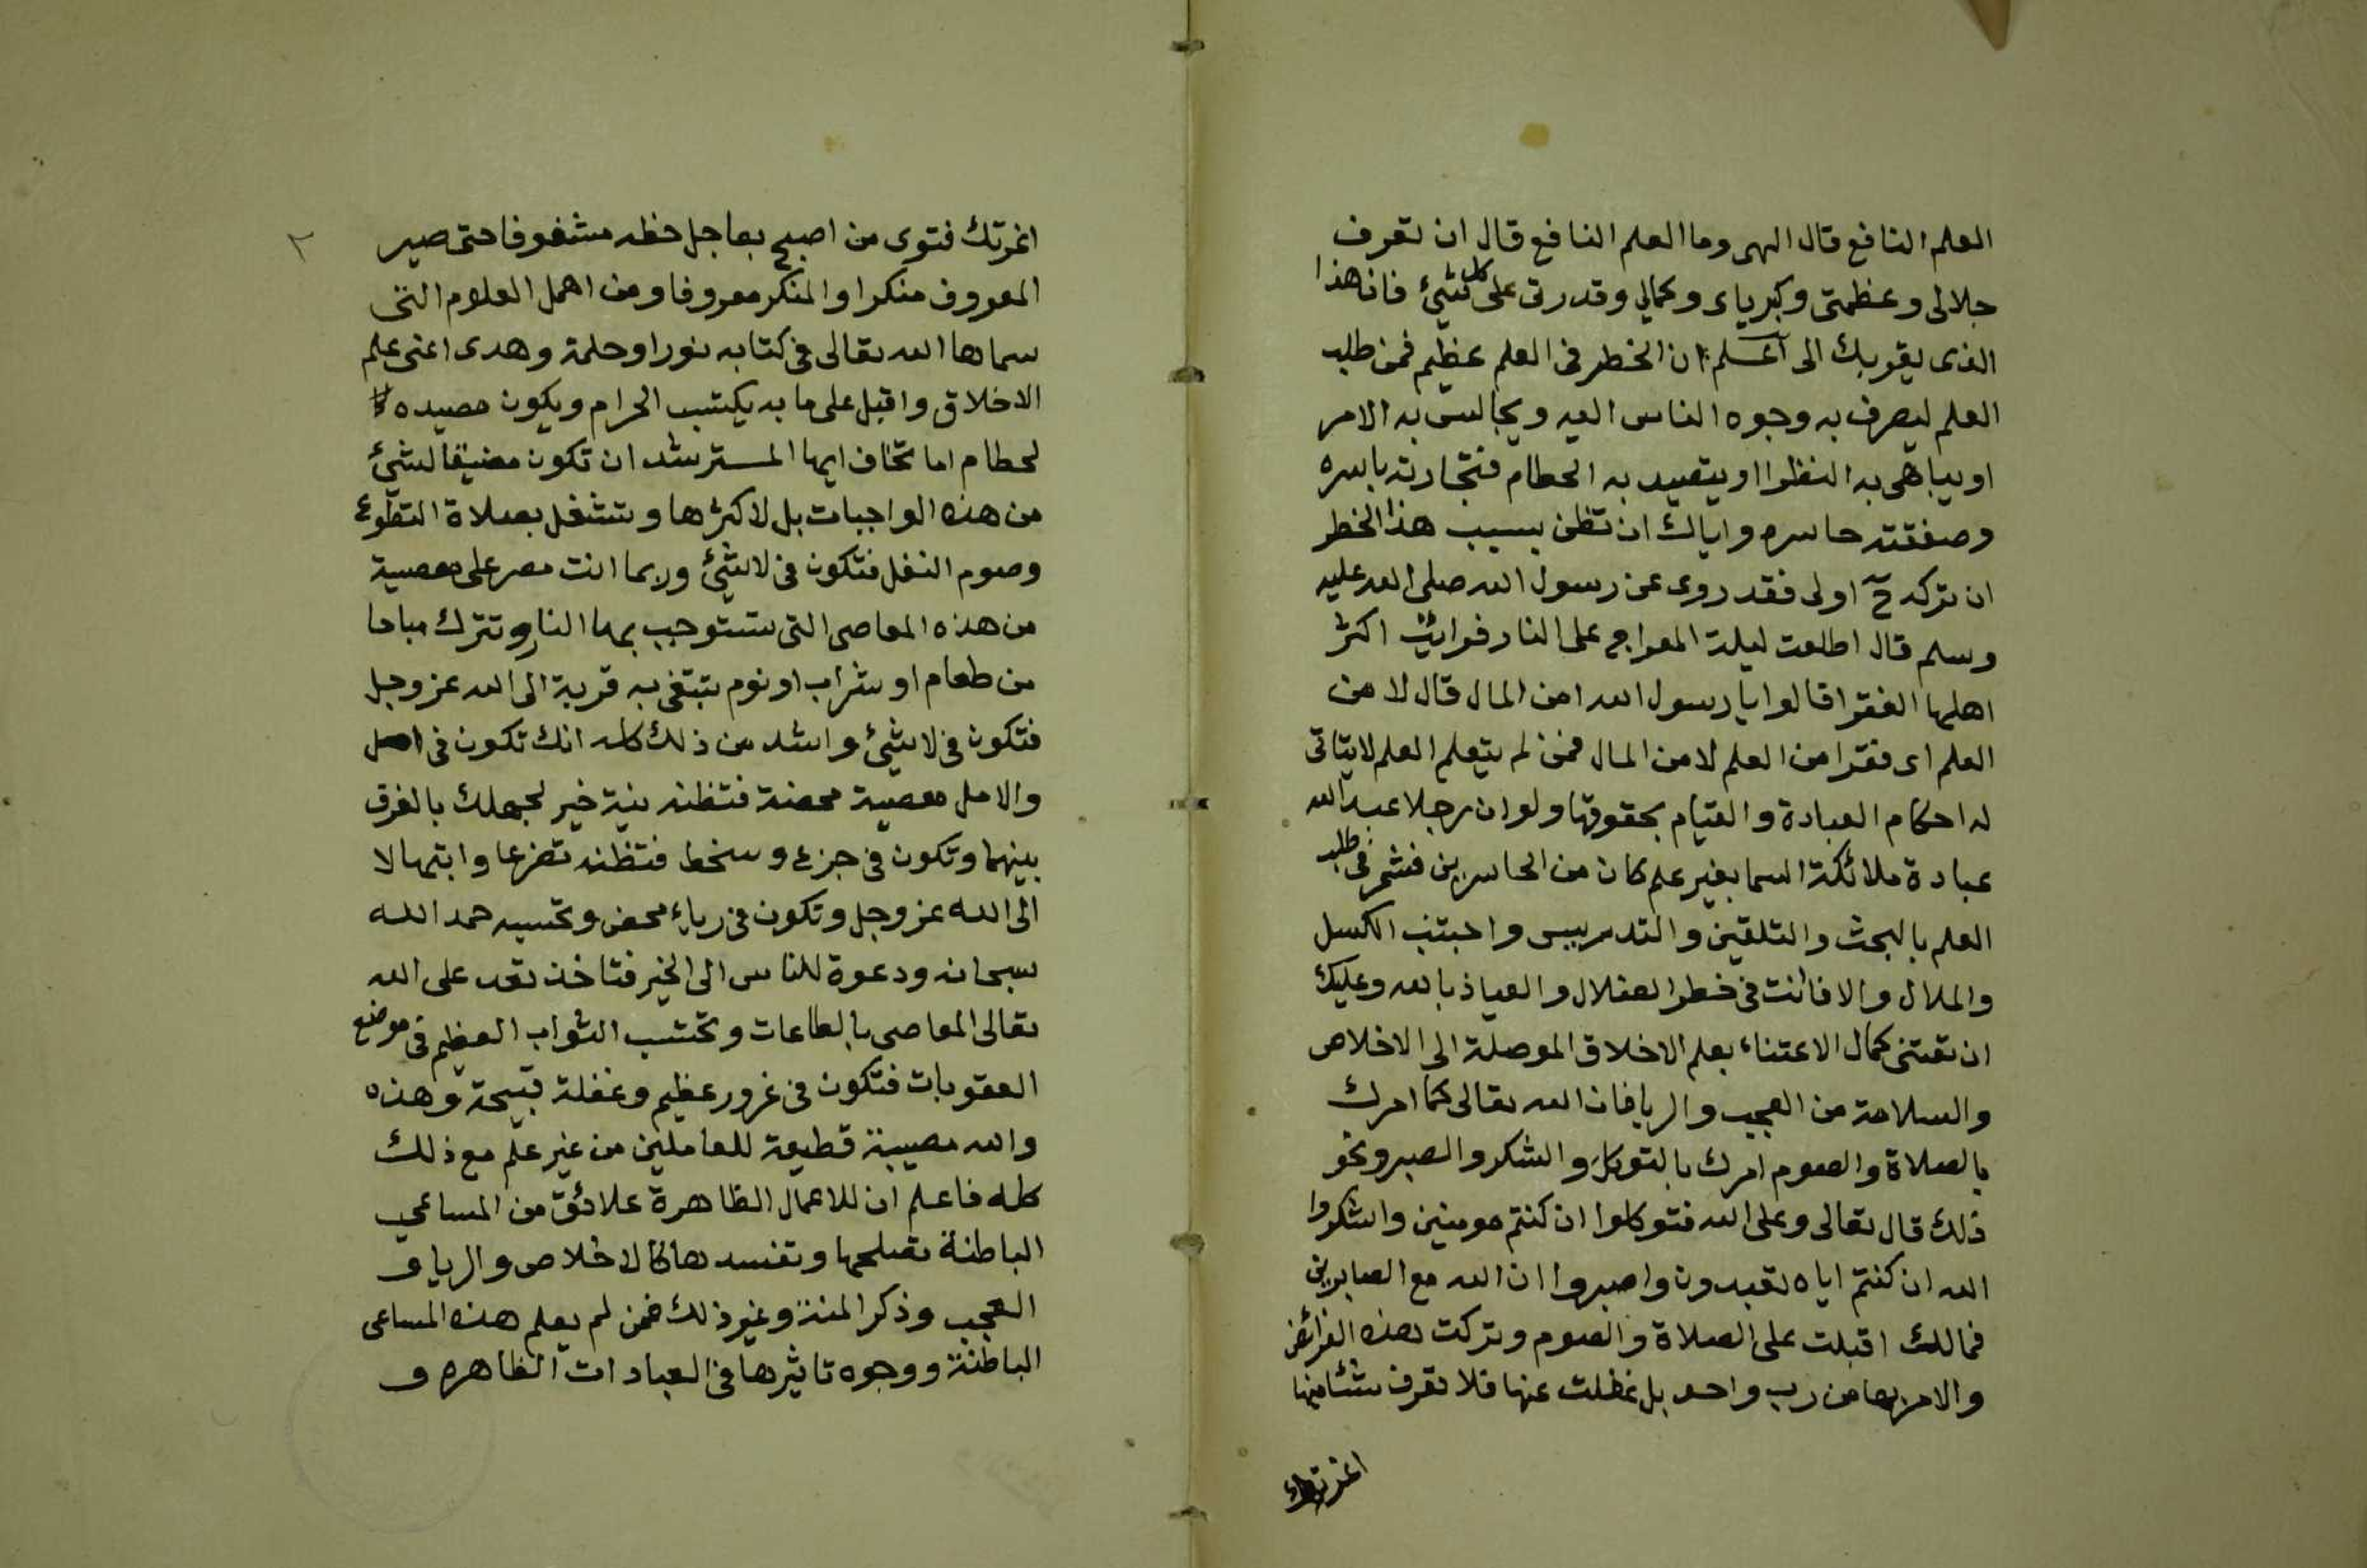 العلم النافع قال الهى وما العلم النافع قال ان تعرف
جلالى وعظمتى وكبرياى وكمالي وقدرتى على كل شيئ فان هذا
الذى يقربك الى اعلم ان الخطر فى العلم عظيم فمن طلب
العلم ليصرف به وجوه الناس اليه ويجالس به الامر
اويباهى به النظرا اويتصيد به الحطام فتجارته باسره
وصفقته خاسره واياك ان تظن بسبب هذا الخطر
ان تركه ح اولى فقد روى عن رسول الله صلى الله عليه
وسلم قال اطلعت ليلة المعراج على النار فرايت اكثر
اهلها الفقرا قالوا يا رسول الله امن المال قال لا من
العلم اى فقرا من العلم لا من المال فمن لم يتعلم العلم لا يتاتى
له احكام العبادة والقيام بحقوقها ولوان رجلا عبد الله
عبادة ملائكة السما بغير علم كان من الخاسرين فشمر فى طلب
العلم بالبحث والتلقين والتدريس واجتنب الكسل
والملال والا فانت فى خطر الضلال والعياذ بالله وعليك
ان تعتنى كمال الاعتناء بعلم الاخلاق الموصلة الى الاخلاص
والسلامة من العجب والريا فان الله تعالى كما امرك
بالصلاة والصوم امرك بالتوكل والشكر والصبر ونحو
ذلك قال تعالى وعلى الله فتوكلوا ان كنتم مومنين واشكروا
الله ان كنتم اياه تعبدون واصبروا ان الله مع الصابرين
فمالك اقبلت على الصلاة والصوم وتركت هذه الفرائض
والامر بهما من رب واحد بل غفلت عنها فلا تعرف شئا منها
اغرتك
٢
اغرتك فتوى من اصبح بعاجل حظه مشغوفا حتى صير
المعروف منكرا والمنكر معروفا ومن اهمل العلوم التى
سماها الله تعالى فى كتابه نورا وحكمة وهدى اعنى علم
الاخلاق واقبل على ما به يكتسب الحرام ويكون مصيده
لحطام اما تخاف ايها المسترشد ان تكون مضيقا لشيئ
من هذه الواجبات بل لاكثرها وتشتغل بصلاة التطوع
وصوم النفل فتكون فى لا شيئ وربما انت مصر على معصية
من هذه المعاصى التى تستوجب بها النار وتترك مباحا
من طعام او شراب او نوم تبتغى به قربة الى الله عز وجل
فتكون فى لا شيئ واشد من ذلك كله انك تكون فى امل
والامل معصية محضة فتظنه نية خير لجهلك بالفرق
بينهما وتكون فى جزع وسخط فتظنه تضرعا وابتهالا
الى الله عز وجل وتكون فى رياء محض وتحسبه حمد الله
سبحانه ودعوة للناس الى الخير فتاخذ تعد على الله
تعالى المعاصى بالطاعات وتحتسب الثواب العظيم فى موضع
العقوبات فتكون فى غرور عظيم وغفلة قبيحة وهذه
والله مصيبة قطيعة للعاملين من غير علم مع ذلك
كله فاعلم ان للاعمال الظاهرة علائق من المساعى
الباطنة تصلحها وتفسدها كالاخلاص والريا و
العجب وذكر المنة وغير ذلك فمن لم يعلم هذه المساعى
الباطنة ووجوه تاثيرها فى العبادات الظاهره و